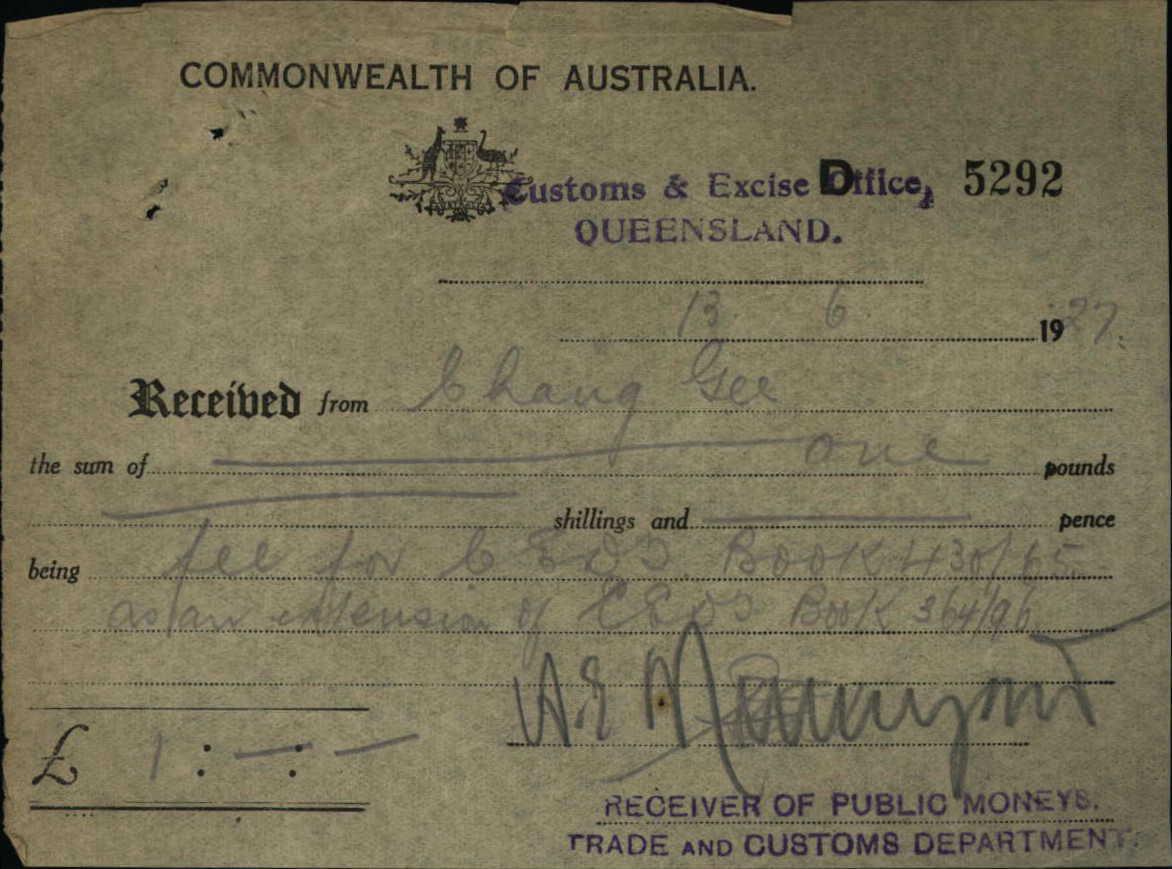 COMMONWEALTH OF AUSTRALIA.
Customs & Excise Office, D 5292
QUEENSLAND.
13 6 1927.
Received from Chang Gee
the sum of one pounds
shillings and pence
being fee for C E D T. Book 430/65
as an extension of C E D T Book 364/96
£ 1 : — : —
RECEIVER OF PUBLIC MONEYS.
TRADE AND CUSTOMS DEPARTMENT.